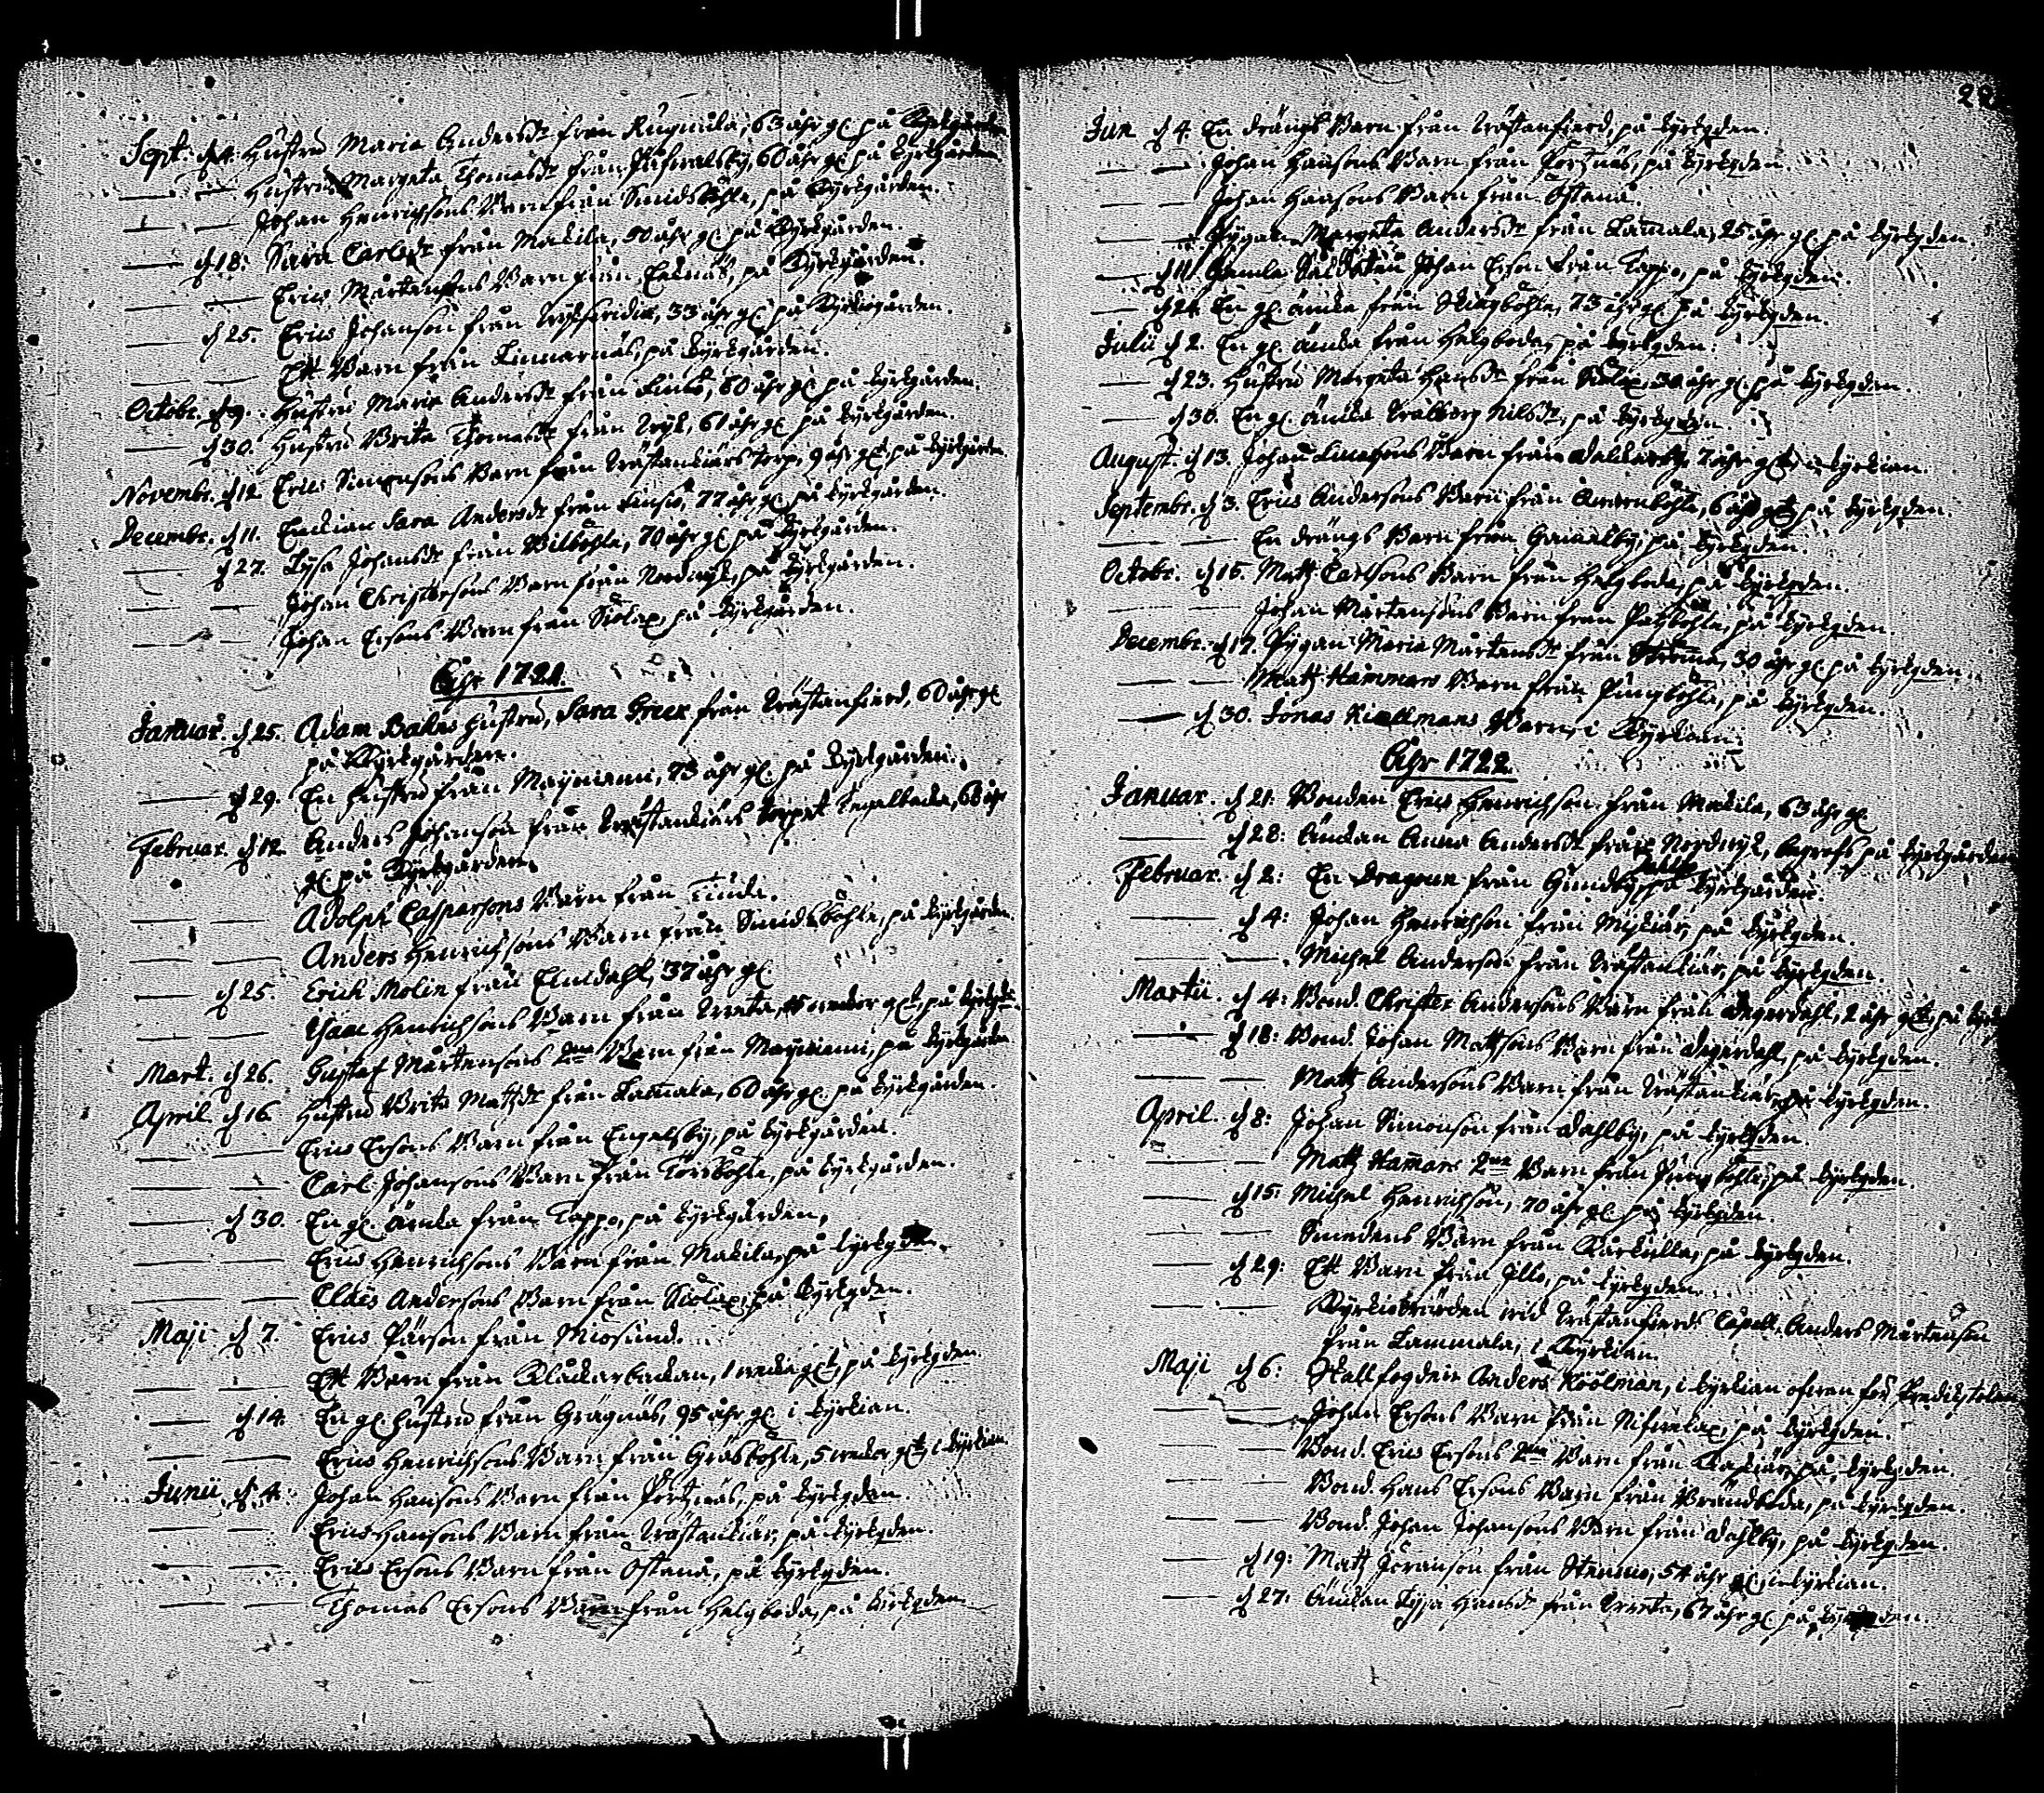 Sept. d. 4. Hustru Maria Andersdr från Rugnula, 63 åhr gl. på Kyrkgården
Hustru Margeta Thomasdr från Påfwalsby, 60 åhr gl. på kyrkgården.
Johan Henrichsons Barn från Smidsböhle, på Kyrkgården.
d. 18. Sara Carlsdr från Makila, 50 åhr gl. på Kyrkgården.
Erics Mårtensons Barn från Eknäs, på Kyrkgården.
d. 25. Erics Johanson från, 33 åhr gl. på Kyrkogården.
Ett Barn från Linnarnäs, på kyrkgården.
Octobr. d. 9. Hustru Maria Andersdr från, 60 åhr gl. på kyrkgården.
d. 30. Hustru Brita Thomasdr från Wijk, 61 åhr gl. på kyrkgården.
Novembr. d. 12. Erics Simonsons Barn från Wästankiärs torp, 9 åhr glt, på kyrkgården
Decembr. d. 11. Enckian Sara Andersdr från, 77 åhr gl. på kyrkgården.
d. 27. Lysa Johansdr från Bilböhle, 70 åhr gl. på kyrkgården.
Johan Christersons Barn från Nordwyk, på kyrkgården.
Johan Ersons Barn från Siölax, på kyrkgården.
Åhr 1721.
Januar. d. 25. Adam Bakes Hustru, Sara Greex från Wästanfierd, 60 åhr gl.
på Kyrkgården.
d. 29. En hustru från Mayniemi, 73 åhr gl. på kyrkgården.
Februar. d. 12. Anders Johanson från Wästankiärs torpet Tegelbacka, 66 åhr
gl. på Kyrkgården.
Adolph Caspersons Barn från.
Anders Henrichsons Barn från Smidsböhle, på kyrkgården.
d. 25. Erich Molin från Elmdahl, 37 åhr gl.
Isaac Henrichsons Barn från Wreta, weckor glt, på kyrkgdn.
Mart. d. 26. Gustaf Mårtensons 2ne Barn från Mayniemi, på kyrkgården
April. d. 16. Hustru Brita Mattzdr från Lammala, 60 åhr gl. på kyrkgården.
Erics Ersons Barn från Engelsby, på kyrkgården.
Carl Johansons Barn från Torsböhle, på kyrkgården.
d. 30. En gl. änka från Tappo, på kyrkgården.
Erics Henrichsons Barn från Makila, på kyrkgden.
Claës Andersons Barn från Siölax, på kyrkgden.
Maji d. 7. Erics Pärson från Miösund.
Ett Barn från Klåckarbackan, 1 wecka glt, på kyrkgden.
d. 14. En gl. hustru från Grågnäs, 95 åhr gl. i kyrkian.
Erics Henrichsons Barn från Gräsböhle, 5 weckor glt i kyrkian.
Junii d. 4. Johan Hansons Barn från Pörtznäs, på kyrkgden.
Erics Hansons Barn från Wästankiär, på kyrkgden.
Erics Ersons Barn från Östanå, på kyrkgden.
Thomas Ersons Barn från Helgboda, på kyrkgden.
Jun d. 4. En drängs Barn från Wästanfierd, på kyrkgden.
Johan Hansons Barn från Pörtznäs, på kyrkgden.
Johan Hansons Barn från Östanå.
Pygan Margeta Andersdr från Lammala, 25 åhr gl. på kyrkgden.
d. 11. Gamla Johan Erson från Tappo, på kyrkgden.
d. 24. En gl. änka från, 73 åhr gl. på kyrkgden.
Julii d. 2. En gl. änka från Helgboda, på kyrkgden.
d. 23. Hustru Margeta Hansdr från Siölax, 30 åhr gl. på kyrkgden.
d. 30. En gl. änka Walborg Nilsdr, på kyrkgden.
August. d. 13. Johan Barn från, 7 åhr glt, i kyrkian.
Septembr. d. 3. Erics Andersons Barn från Qwarnböhle, 6 åhr glt, på kyrkgden.
En drängs Barn från Gammelby, på kyrkgden.
Octobr. d. 15. Mattz Carlsons Barn från Helgboda, på kyrkgden.
Johan Mårtensons Barn från Patzböhle, på kyrkgden.
Decembr. d. 17. Pygan Maria Mårtensdr från Strömma, 30 åhr gl. på kyrkgden.
Mattz Hammars Barn från Pungböhle, på kyrkgden.
d. 30. Jonas Kiellmans Barn, i Kyrkian.
Åhr 1722.
Januar. d. 21: Bonden Erics Henrichson från Makila, 63 åhr gl.
d. 28: Änckan Anna Andersdr från Nordwyk, begrofs på kyrkgården
Februar. d. 2: En Dragoun från Gundby, på kyrkgården.
d. 4: Johan Henrichson från Mijkiär, på kyrkgden.
Michel Anderson från Wästankiär, på kyrkgden.
Martii. d. 4: Bond. Christer Andersons Barn från Degerdahl, 2 åhr glt, på
d. 18: Bond. Johan Mattsons Barn från Degerdahl, på kyrkgden.
Mattz Andersons Barn från Wästankiär, på kyrkgden.
April. d. 8: Johan Simonson från Dahlby, på kyrkgden.
Mattz Hammars 2ne Barn från Pungböhle, på kyrkgden.
d. 15: Michel Henrichson, 70 åhr gl. på kyrkgden.
Smedens Barn från Kårkulla, på kyrkgden.
d. 29: Ett Barn från Illo, på kyrkgden.
Kyrkiowärden wid Wästanfierds Capell, Anders Mårtenson
från Lammala, i Kyrkian.
Maji d. 6: Stallfogden Anders Köölman, i kyrkian ofwan för Predikstolen
Johan Ersons Barn från Nifwelax, på kyrkgden.
Bond. Erics Ersons 2ne Barn från, på kyrkgden.
Bond. Hans Ersons Barn från Brandboda, på kyrkgden.
Bond. Johan Johansons Barn från Dahlby, på kyrkgden.
d. 19: Mattz Jöranson från Stennio, 54 åhr gl, i kyrkian.
d. 27: Änckan Lysa Hansdr från Wreta, 67 åhr gl. på kyrkgden.